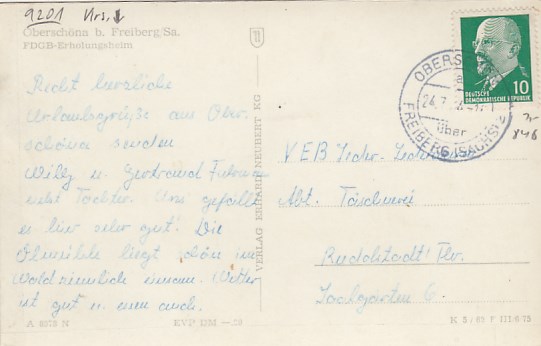 9201 Krs.
Oberschöna b. Freiberg/Sa.
FDGB-Erholungsheim
Recht herzliche
Urlaubsgrüße aus Ober-
schöna senden
Willy u. Gertraud
nebst Tochter. Uns gefällt
es hier sehr gut. Die
liegt schön im
Wald ziemlich einsam. Wetter
ist gut u. warm auch.
A 8078 N
EVP DM —.20
VERLAG ERHARD NEUBERT KG
DEUTSCHE
DEMOKRATISCHE REPUBLIK
10
24.7.
über
FREIBERG (SACHS) 2
VEB
Abt. Täschnerei
Rudolstadt/Thr.
6.